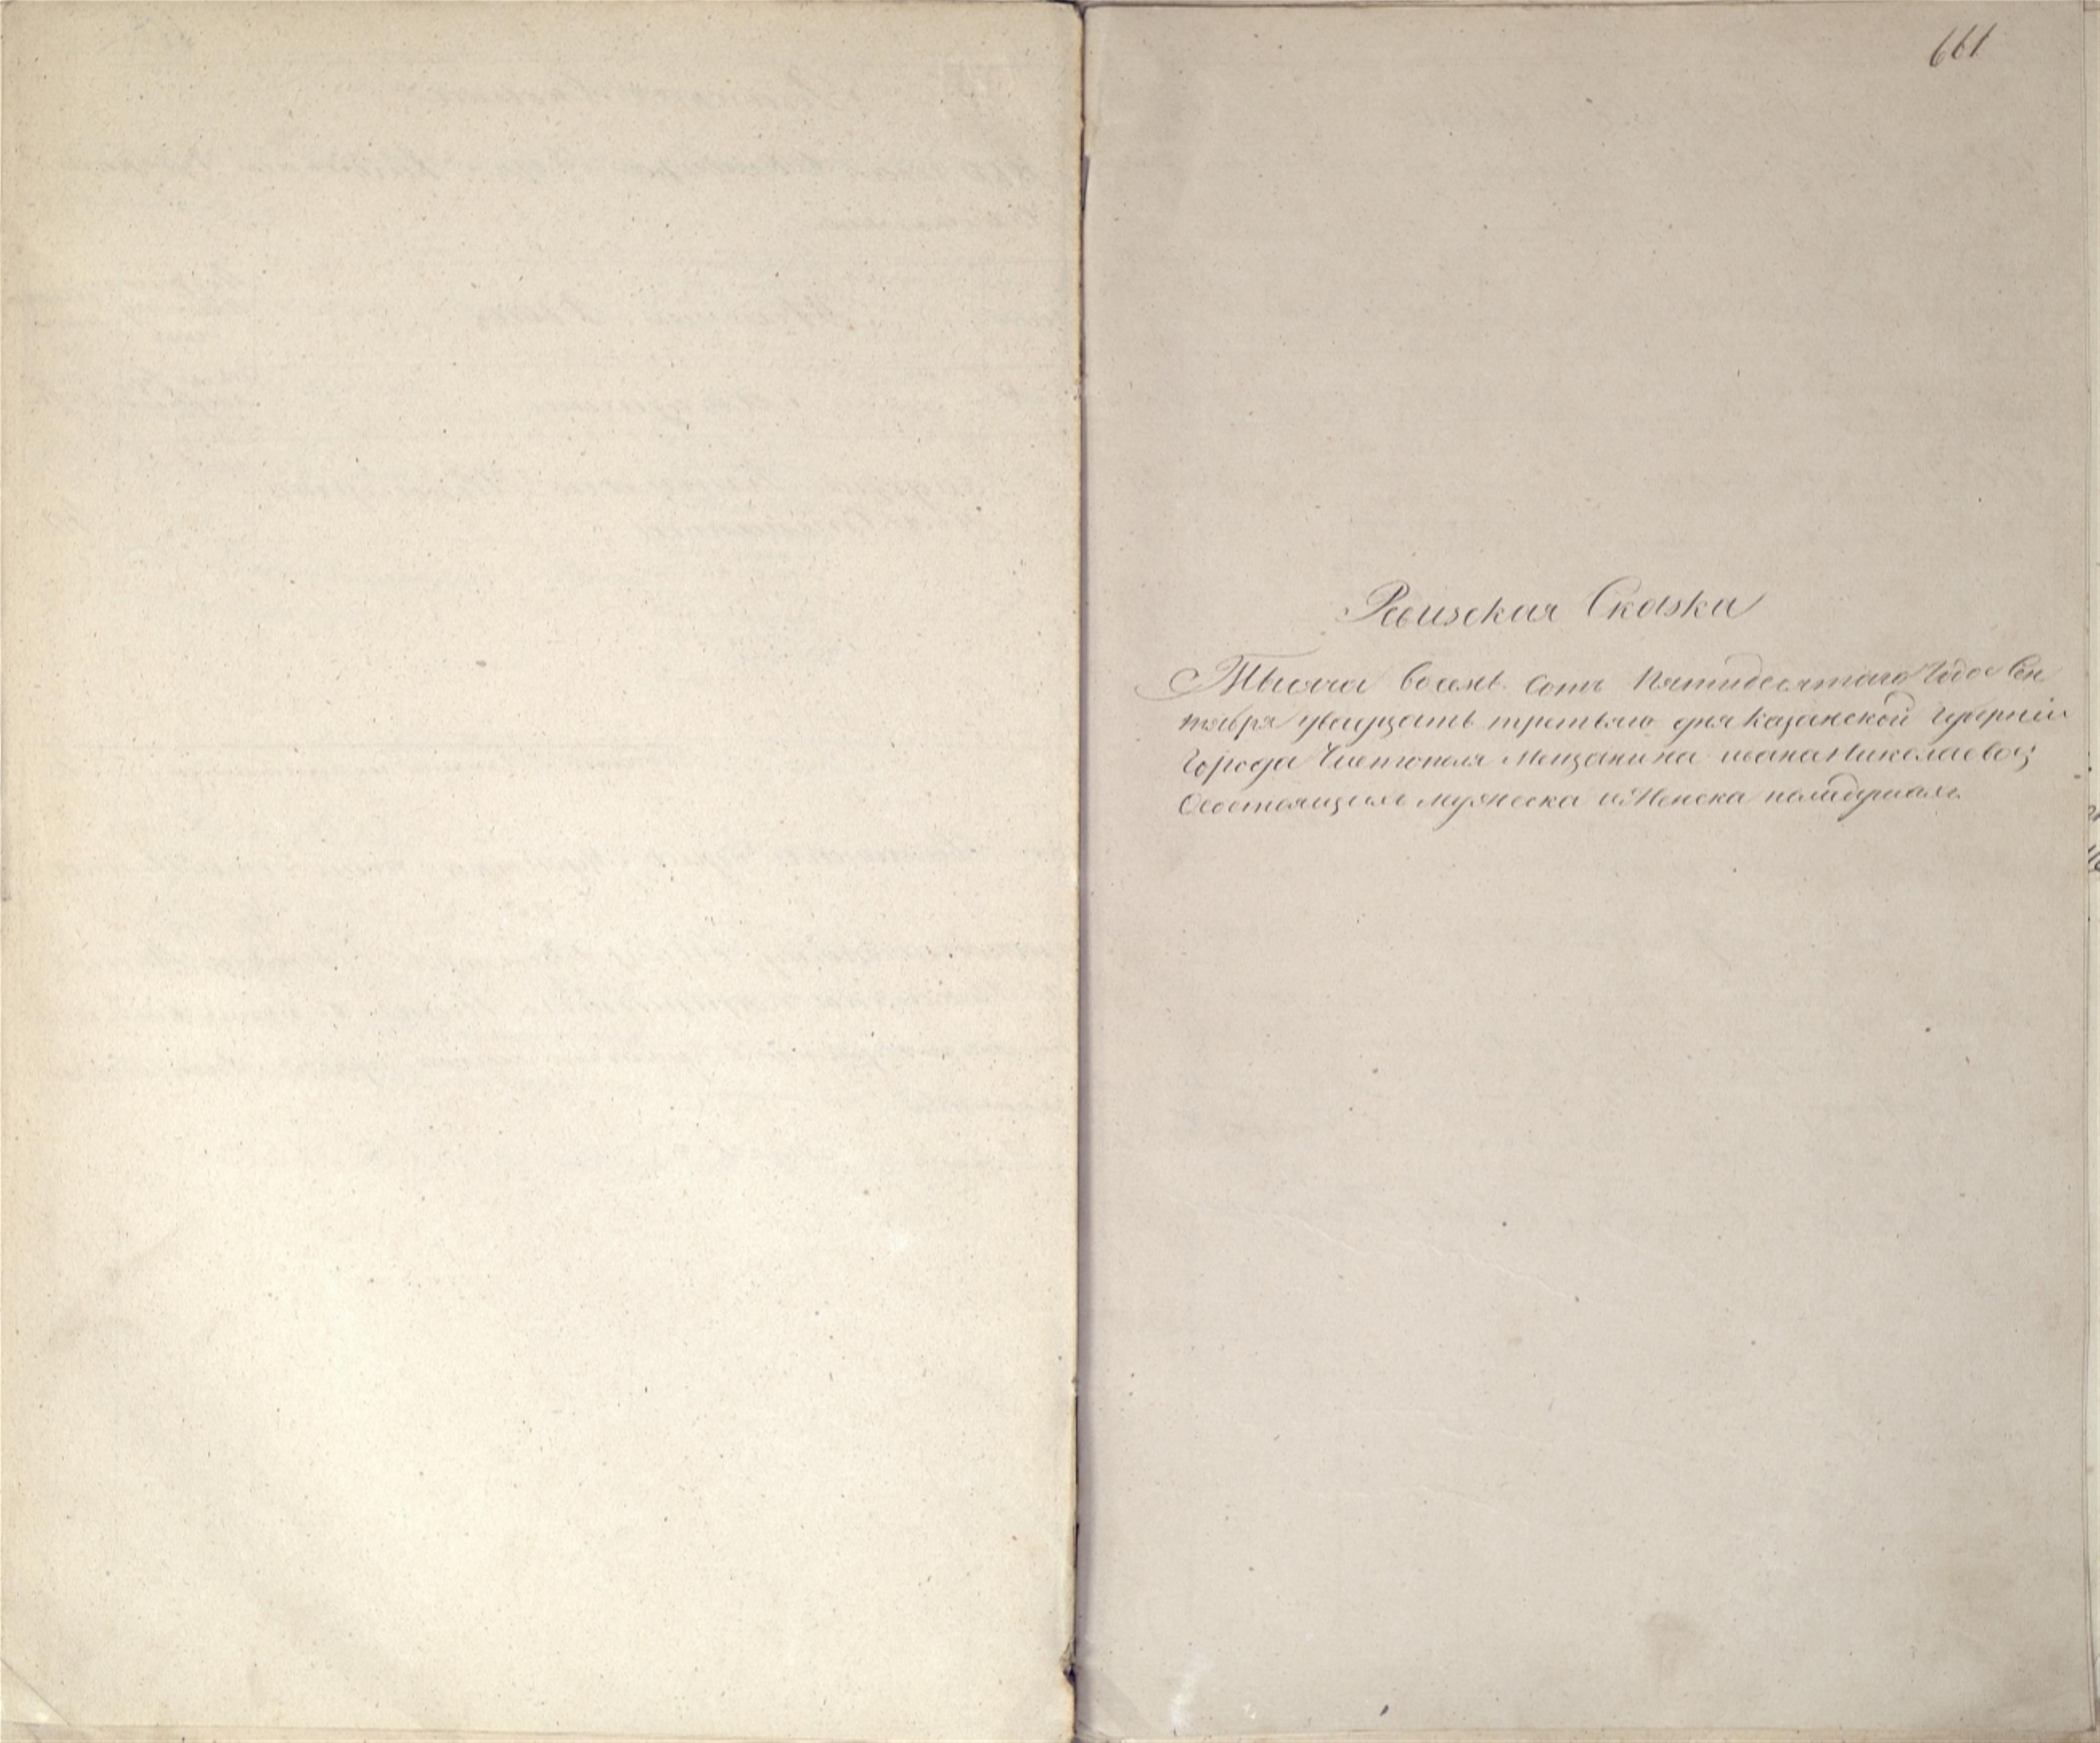 661
Ревизская Сказка
Тысяча восемь сотъ Пятидесятаго Года Сен
тября двадцать третьяго дня Казанской Губерніи
Города Чистополя Мещанина ивана Николаева
О состоящихъ мужеска и Женска пола душахъ